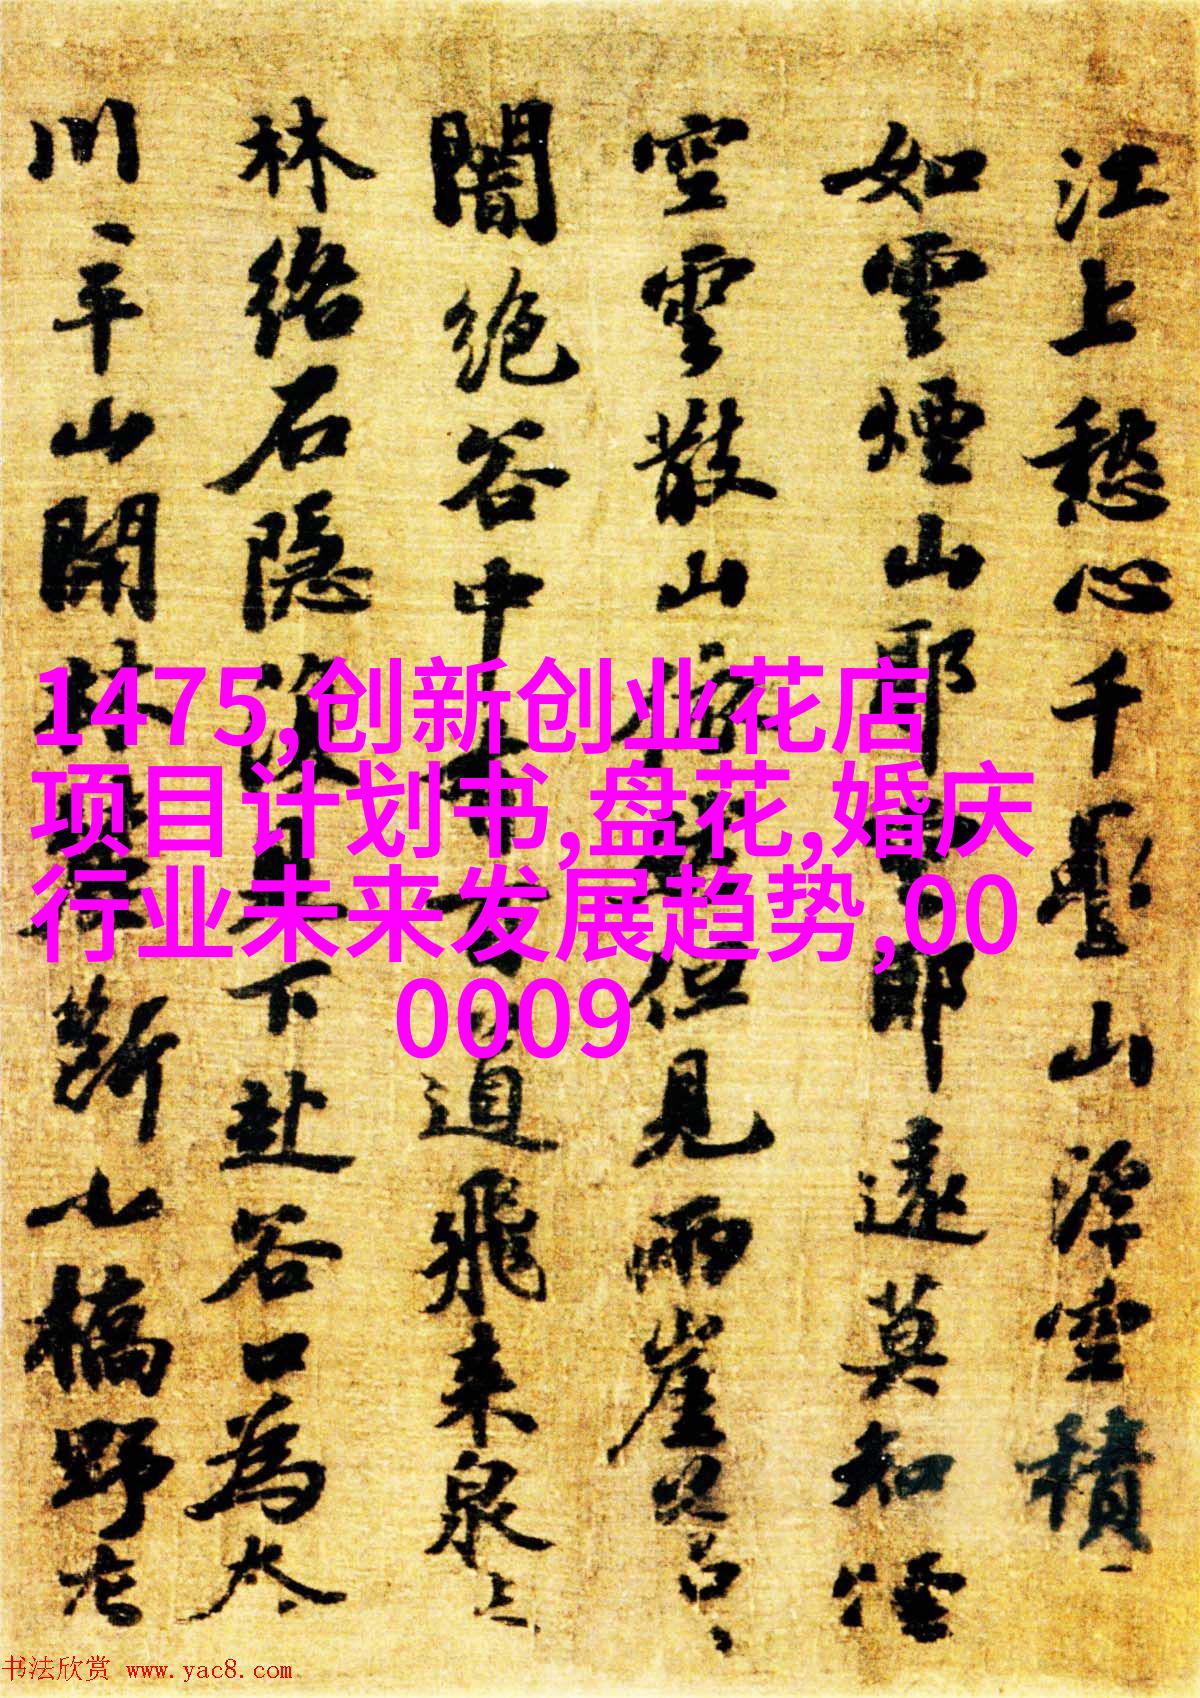 江上愁心千疊山浮空積
如雲煙山耶雲耶遠莫知煙
空雲散山依然但見兩崖蒼
闇絕谷中百道飛來泉
林絡石隱復見下赴谷口為
川平山開林麓斷小橋野店
1475,创新创业花店
项目计划书,盘花,婚庆
行业未来发展趋势,00
0009
书法欣赏 www.yac8.com